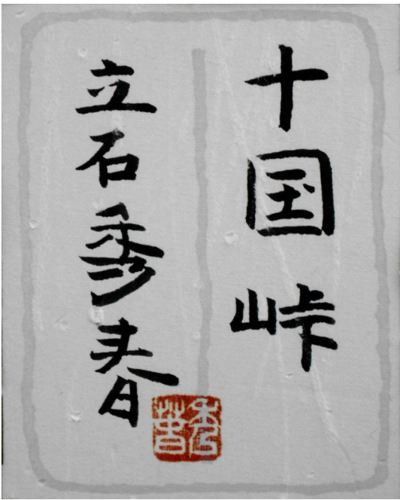 十国峠
立石秀春
秀春